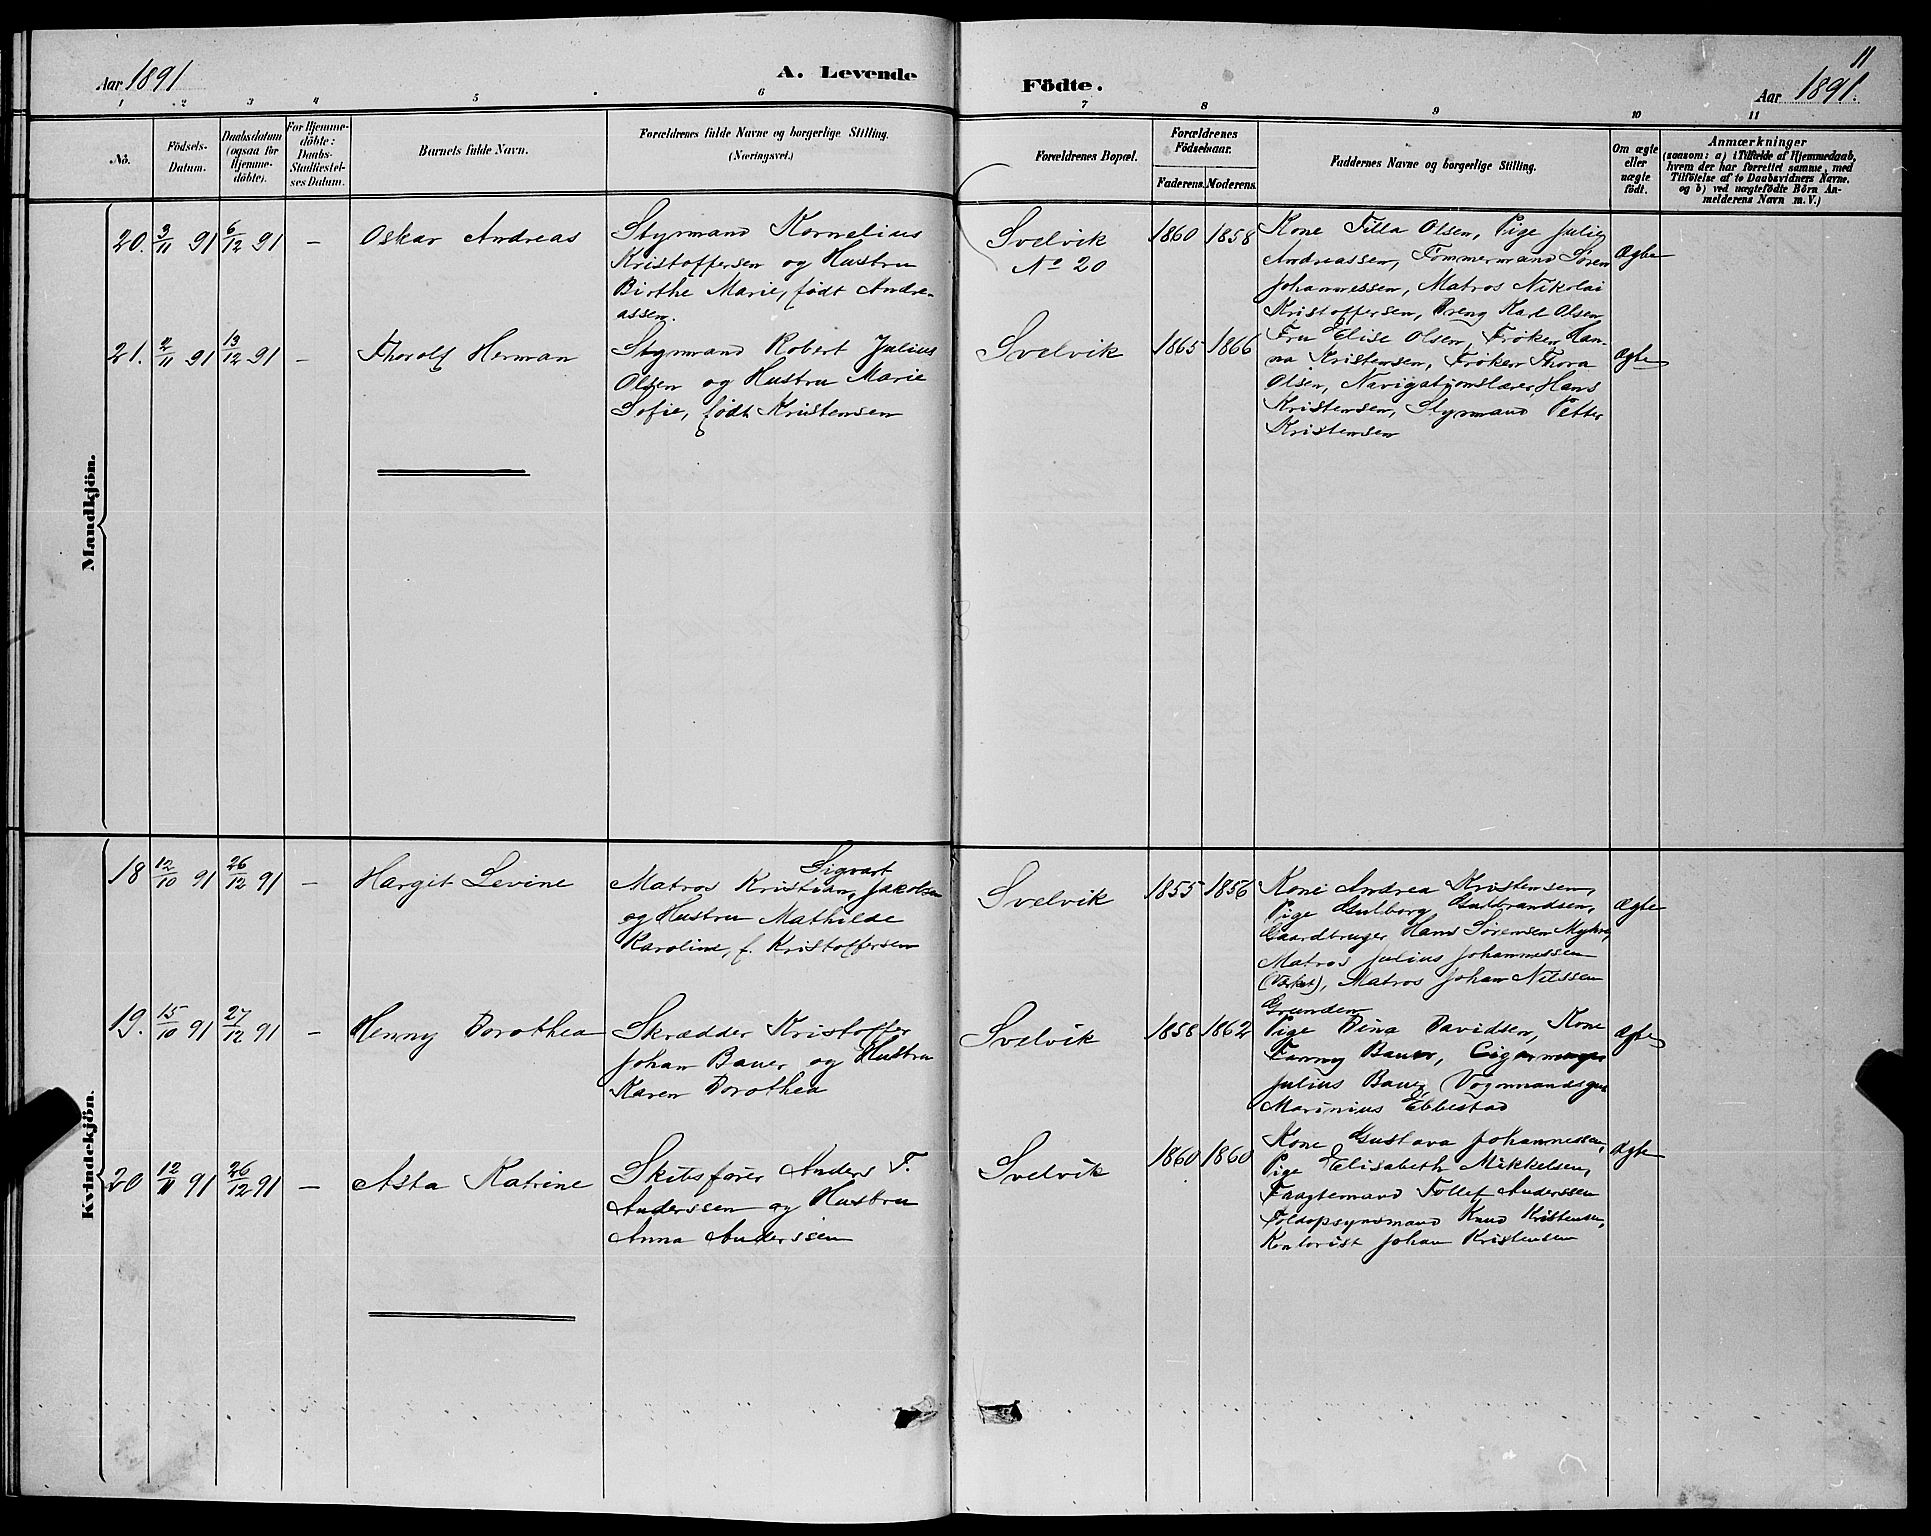 Aar 1891
A. Levende
Födte.
11
Aar 1891.
1 2 3 4 5 6 7 8 9 10 11
No.
Födsels-
Datum.
Daabsdatum
(ogsaa for
Hjemme-
döbte).
For Hjemme-
döbte:
Daabs-
Stadfæstel-
ses Datum.
Barnets fulde Navn.
Forældrenes fulde Navne og borgerlige Stilling.
(Næringsvei.)
Forældrenes Bopæl.
Forældrenes
Födselsaar.
Faderens. Moderens.
Faddernes Navne og borgerlige Stilling.
Om ægte
eller
uægte
födt.
Anmærkninger
(saasom: a) i Tilfælde af Hjemmedaab,
hvem der har forrettet samme, med
Tilföielse af to Daabsvidners Navne,
og b) ved uægtefödte Börn An-
melderens Navn m. V.)
Mandkjön.
20. 3/11 91 6/12 91 – Oskar Andreas
Styrmand Kornelius
Kristoffersen og Hustru
Birthe Marie, født Andre-
assen.
Svelvik
No 20
1860 1858
Kone Tilla Olsen, Pige Julie
Andreassen, Tømmermand Søren
Johannessen, Matros Nikolai
Kristoffersen, Dreng Karl Olsen
Ægte
21. 2/11 91 13/12 91 – Thorolf Herman
Styrmand Robert Julius
Olsen og Hustru Marie
Sofie, født Kristensen
Svelvik
1865 1866
Fru Elise Olsen, Frøken Han-
na Kristensen, Frøken Thora
Olsen, Navigationslærer Hans
Kristensen, Styrmand Petter
Kristensen
Ægte
Kvindekjön.
18 12/10 91 26/12 91 – Hargit Levine
Sigvart
Matros Kristian Jakobsen
og Hustru Mathilde
Karoline, f. Kristoffersen
Svelvik
1855 1856
Kone Andrea Kristensen,
Pige Gulborg Gulbrandsen,
Gaardbruger Hans Sørensen Myhre,
Matros Julius Johannessen
(Verket), Matros Johan Nilssen
Grunden
Ægte
19. 15/10 91 27/12 91 – Henny Dorothea
Skrædder Kristoffer
Johan Bauer og Hustru
Karen Dorothea
Svelvik
1858 1862
Pige Dina Davidsen, Kone
Fanny Bauer,
Julius Bauer, Vognmandsgut
Marinius Ebbestad
Ægte
20 12/11 91 26/12 91 – Asta Katrine
Skibsfører Anders T.
Anderssen og Hustru
Anna Anderssen
Svelvik
1860 1860
Kone Gustava Johannessen,
Pige Elisabeth Mikkelsen,
Fragtemand Tollef Anderssen
Toldopsynsmand Knud Kristensen,
Kontorist Johan Kristensen
Ægte